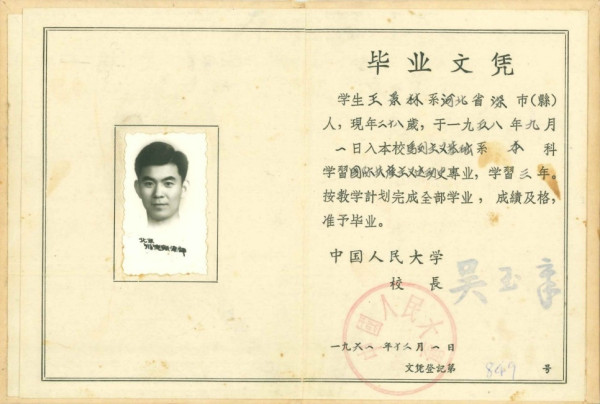 毕业文凭
学生王景林系河北省深市(縣)
人，现年二十八歲，于一九五八年九月
一日入本校马列主义基础系本科
学習国际共产主义运动史專业，学習三年。
按教学計划完成全部学业，成績及格，
准予毕业。
中国人民大学
校長 吴玉章
一九六一年十二月一日
文凭登記第849号
北京
中国人民大